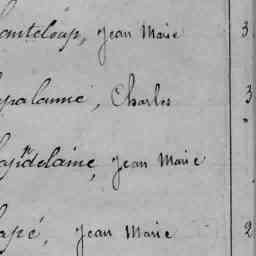 anteloup, Jean Marie 3
palanne, Charles 3
Jean Marie
apé, Jean Marie 2